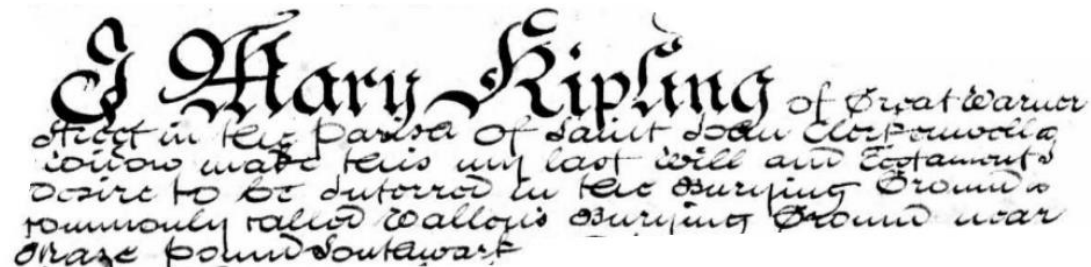 I Mary Kipling of Great Warner
Street in the Parish of Saint John Clerkenwell
widow make this my last Will and Testament I
desire to be Interred in the Burying Ground
commonly called Wallops Burying Ground near
Maze pound Southwark